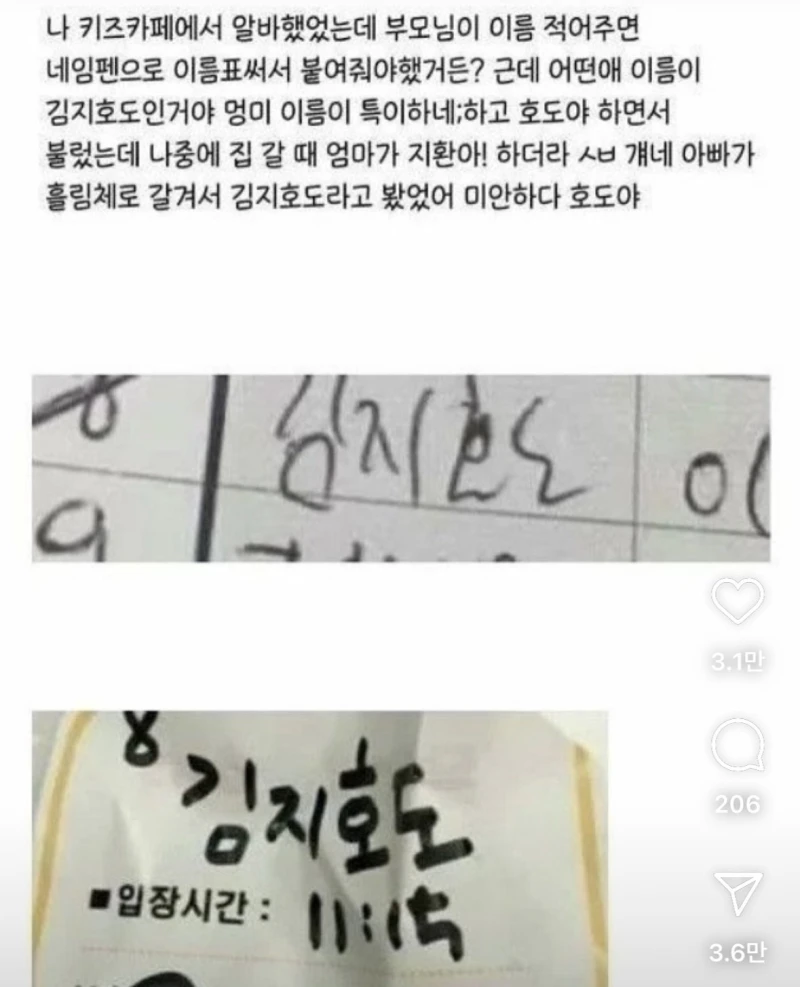 나 키즈카페에서 알바했었는데 부모님이 이름 적어주면
네임펜으로 이름표써서 붙여줘야했거든? 근데 어떤애 이름이
김지호도인거야 멍미 이름이 특이하네;하고 호도야 하면서
불렀는데 나중에 집 갈 때 엄마가 지환아! 하더라 ㅅㅂ 걔네 아빠가
흘림체로 갈겨서 김지호도라고 봤었어 미안하다 호도야
8
김지호도
9
3.1만
206
8
김지호도
■입장시간 : 11:15
3.6만